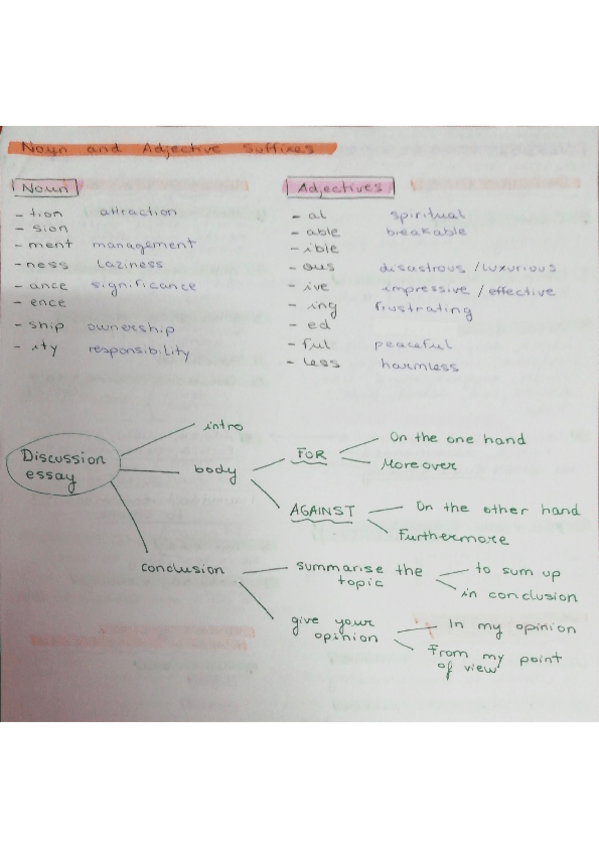 Noun and Adjective Suffixes
Noun
- tion attraction
- sion
- ment management
- ness laziness
- ance significance
- ence
- ship ownership
- ity responsibility
Adjectives
- al spiritual
- able breakable
- ible
- ous disastrous / luxurious
- ive impressive / effective
- ing frustrating
- ed
- ful peaceful
- less harmless
Discussion
essay
intro
body
FOR
On the one hand
Moreover
AGAINST
On the other hand
Furthermore
conclusion
summarise the
topic
to sum up
in conclusion
give your
opinion
In my opinion
From my point
of view